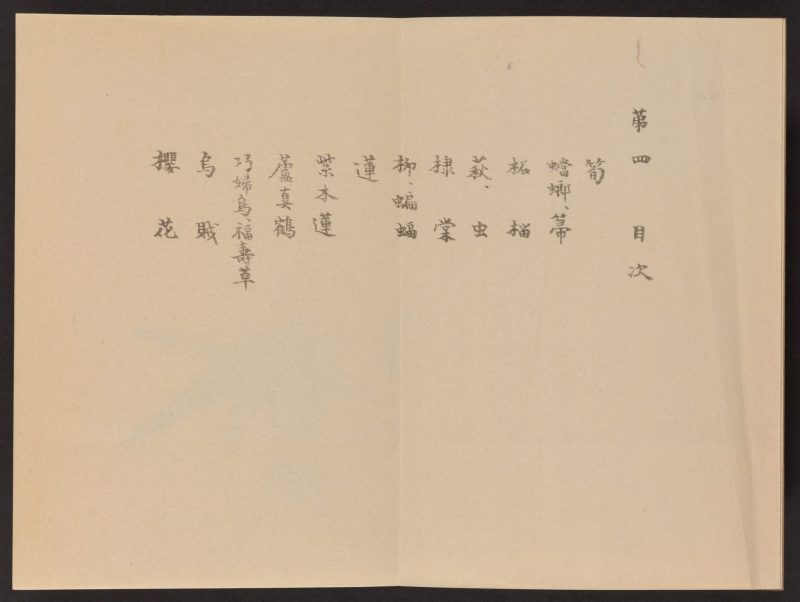 第四 目次
筍
蟷螂、箒
柘榴
萩、虫
棣棠
柳、蝙蝠
蓮
紫木蓮
蘆真鶴
巧婦鳥、福寿草
烏賊
櫻花